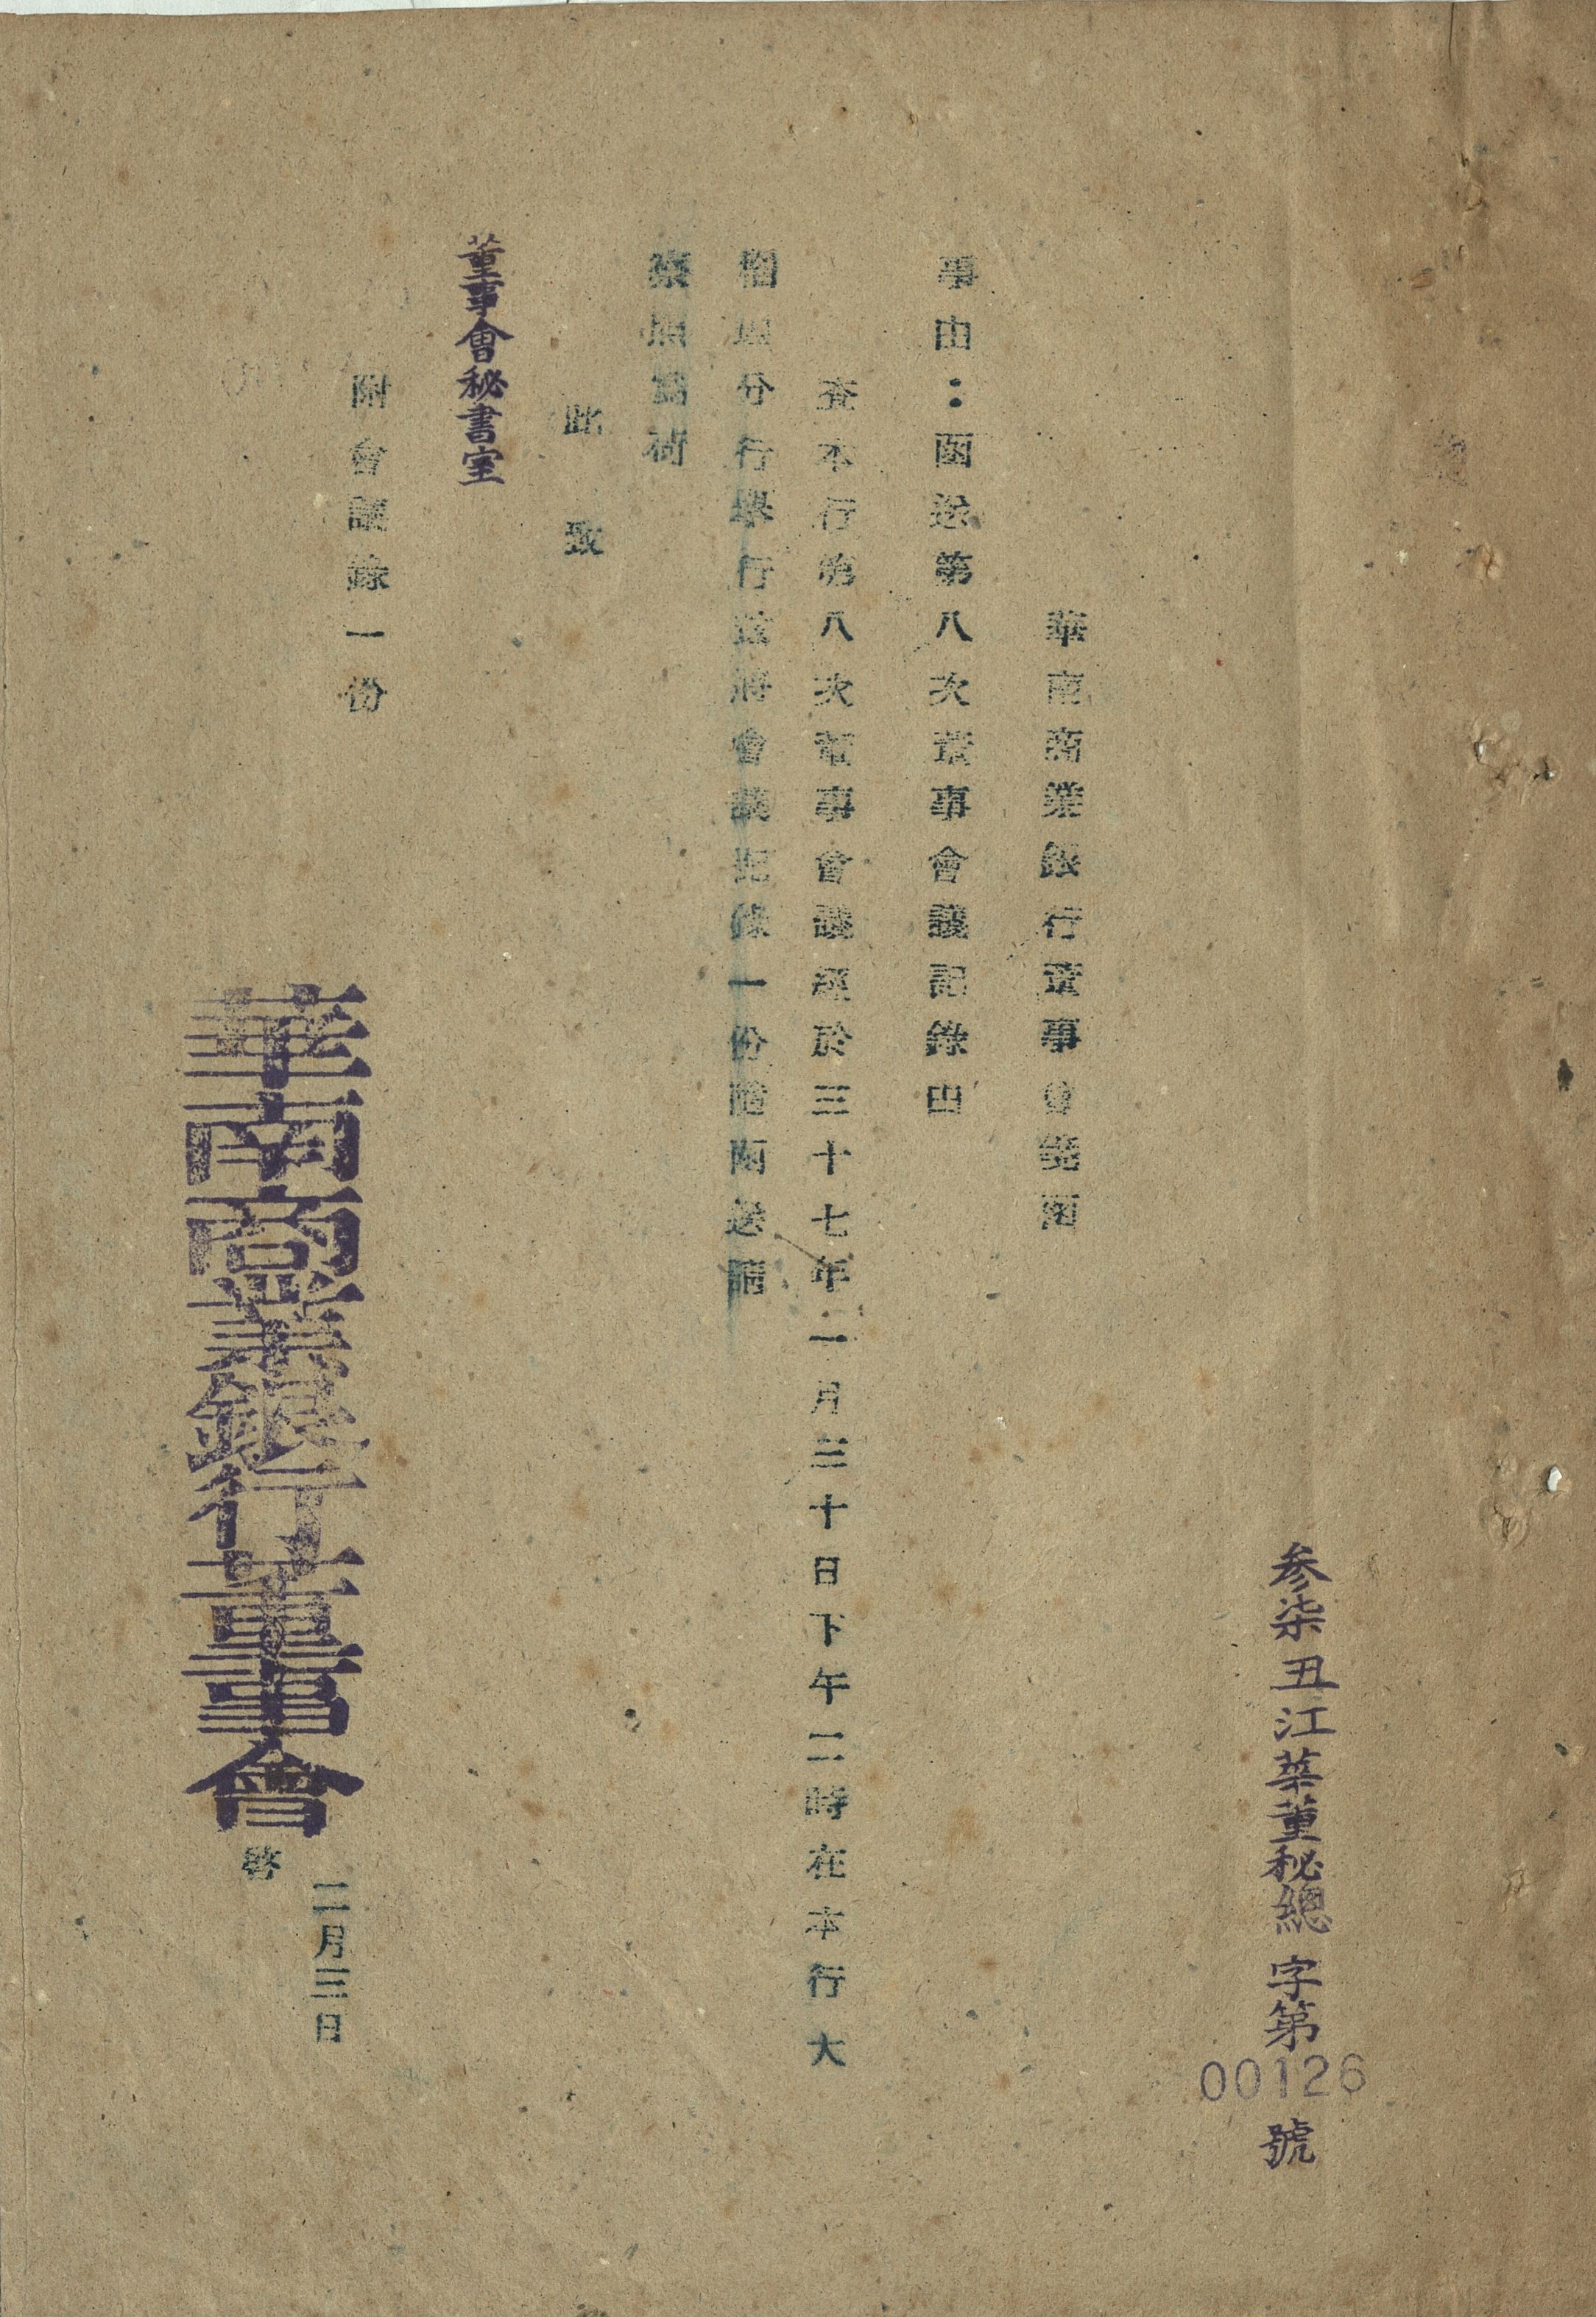 參柒丑江華董秘總字第00126號
華南商業銀行董事會箋函
事由：函送第八次董事會議記錄由
查本行第八次董事會議經於三十七年一月三十日下午二時在本行大
稻埕分行舉行茲將會議記錄一份隨函送請
察照為荷
此致
董事會秘書室
附會議錄一份
二月三日
華南商業銀行董事會啓